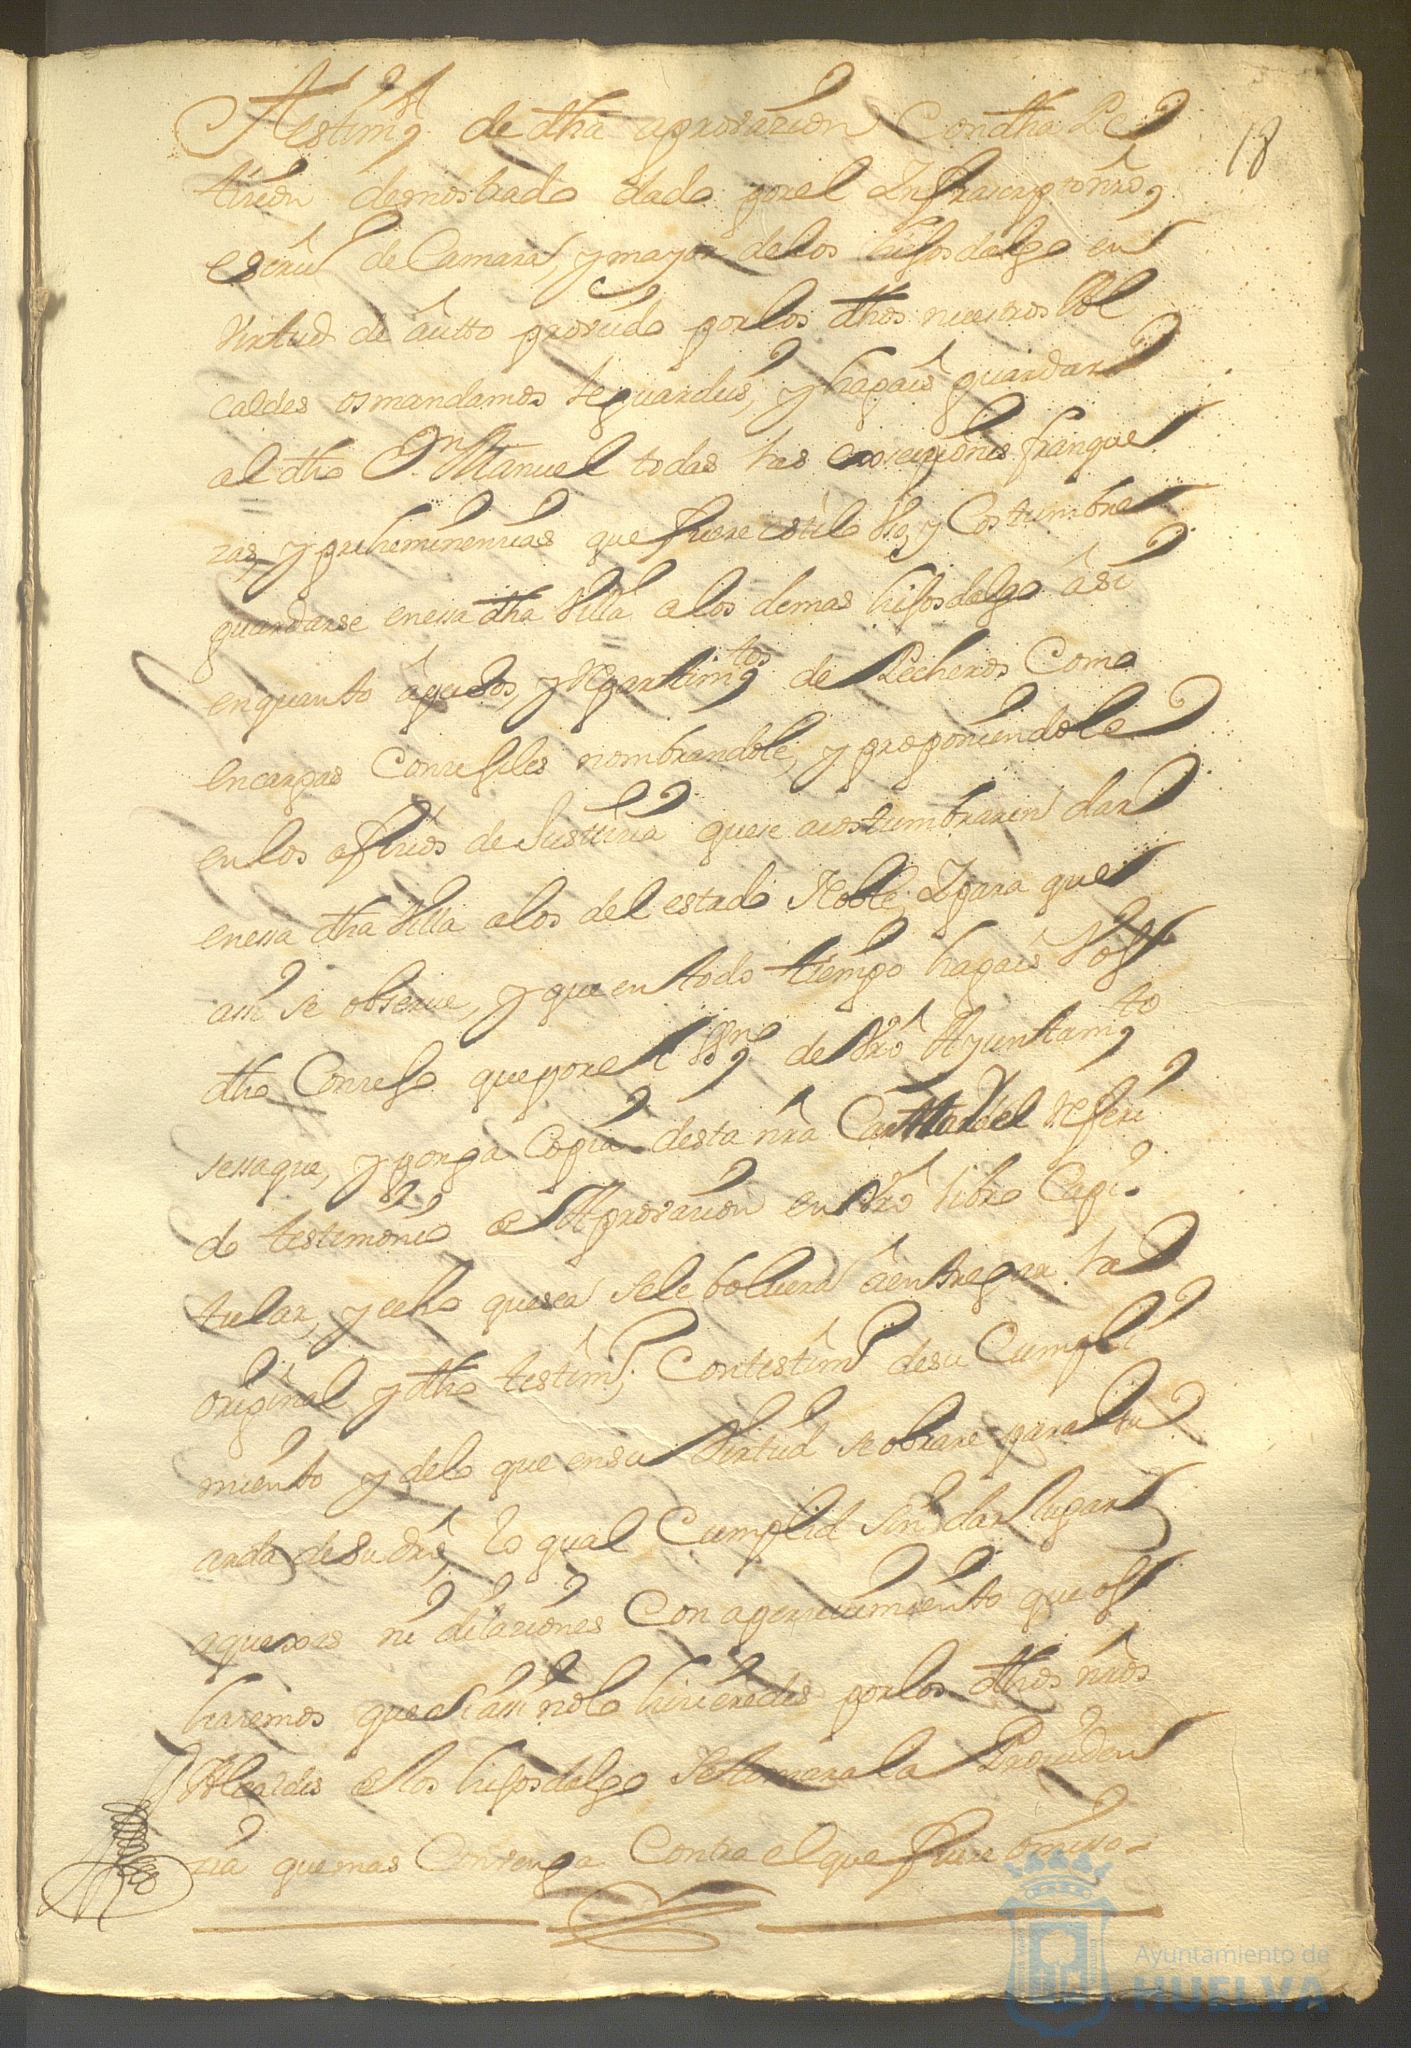 18
testimº de dha aprovazion Con dha Pe
tizion demostrado dado por el Infrascripto nrô
escriv de Camara, y mayor de los hijosdalgo en
virtud de âutto proveido por los dhos nuestros Al
caldes os mandamos le guardeis, y hagais guardar
al dho Dn Manuel todas las exsempziones franque
zas, y preheminenzias que fuere estilo Vso, y Costumbre
guardarse en essa dha Villa a los demas hijosdalgo âsi
en quanto â pechos, y Repartimtos de Pecheros Como
en cargos Conzejiles nombrandole, y proponiendole
en los ofizios de Justizia que se acostumbraren dar
en essa dha Villa a los del estado Noble, Y para que
assi se observe, y que en todo tiempo hagais Vos
dho Conzejo que por el Essno de Vrô Ayuntamto
se saque, y ponga Copia desta nra Cartta del Referi
do testimonio de Aprovazion en Vrô libro Capi
tular, y echo que sea se le bolvera â entregar la
original y dho testimº, Con testimº de su Cumpli
miento y de lo que en su Virtud se obrare para
de su drô, lo qual Cumplid sin dar lugar
a quexas ni dilaziones Con aperzevimiento que os
haremos que si assi no lo hizieredes por los dhos nrôs
Alcaldes de los hijosdalgo se tomara la Providen
zia que mas Convenga Contra el que fuere omisso
Ayuntamiento de
HUELVA